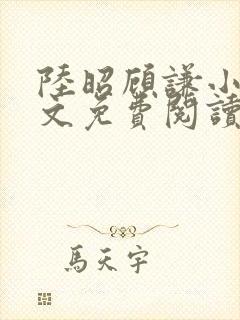 陸昭顾謙小
文免費閱讀
馬天宇